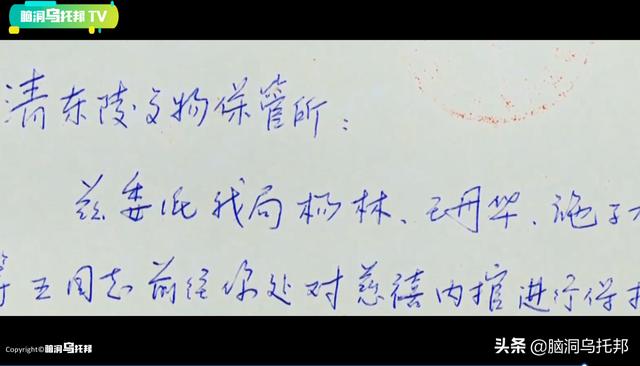 脑洞乌托邦 TV
清东陵文物保管所：
兹委派我局杨林、王丹华、施子
等五同志前往你处对慈禧内棺进行保
Copyright©脑洞乌托邦
头条 @脑洞乌托邦